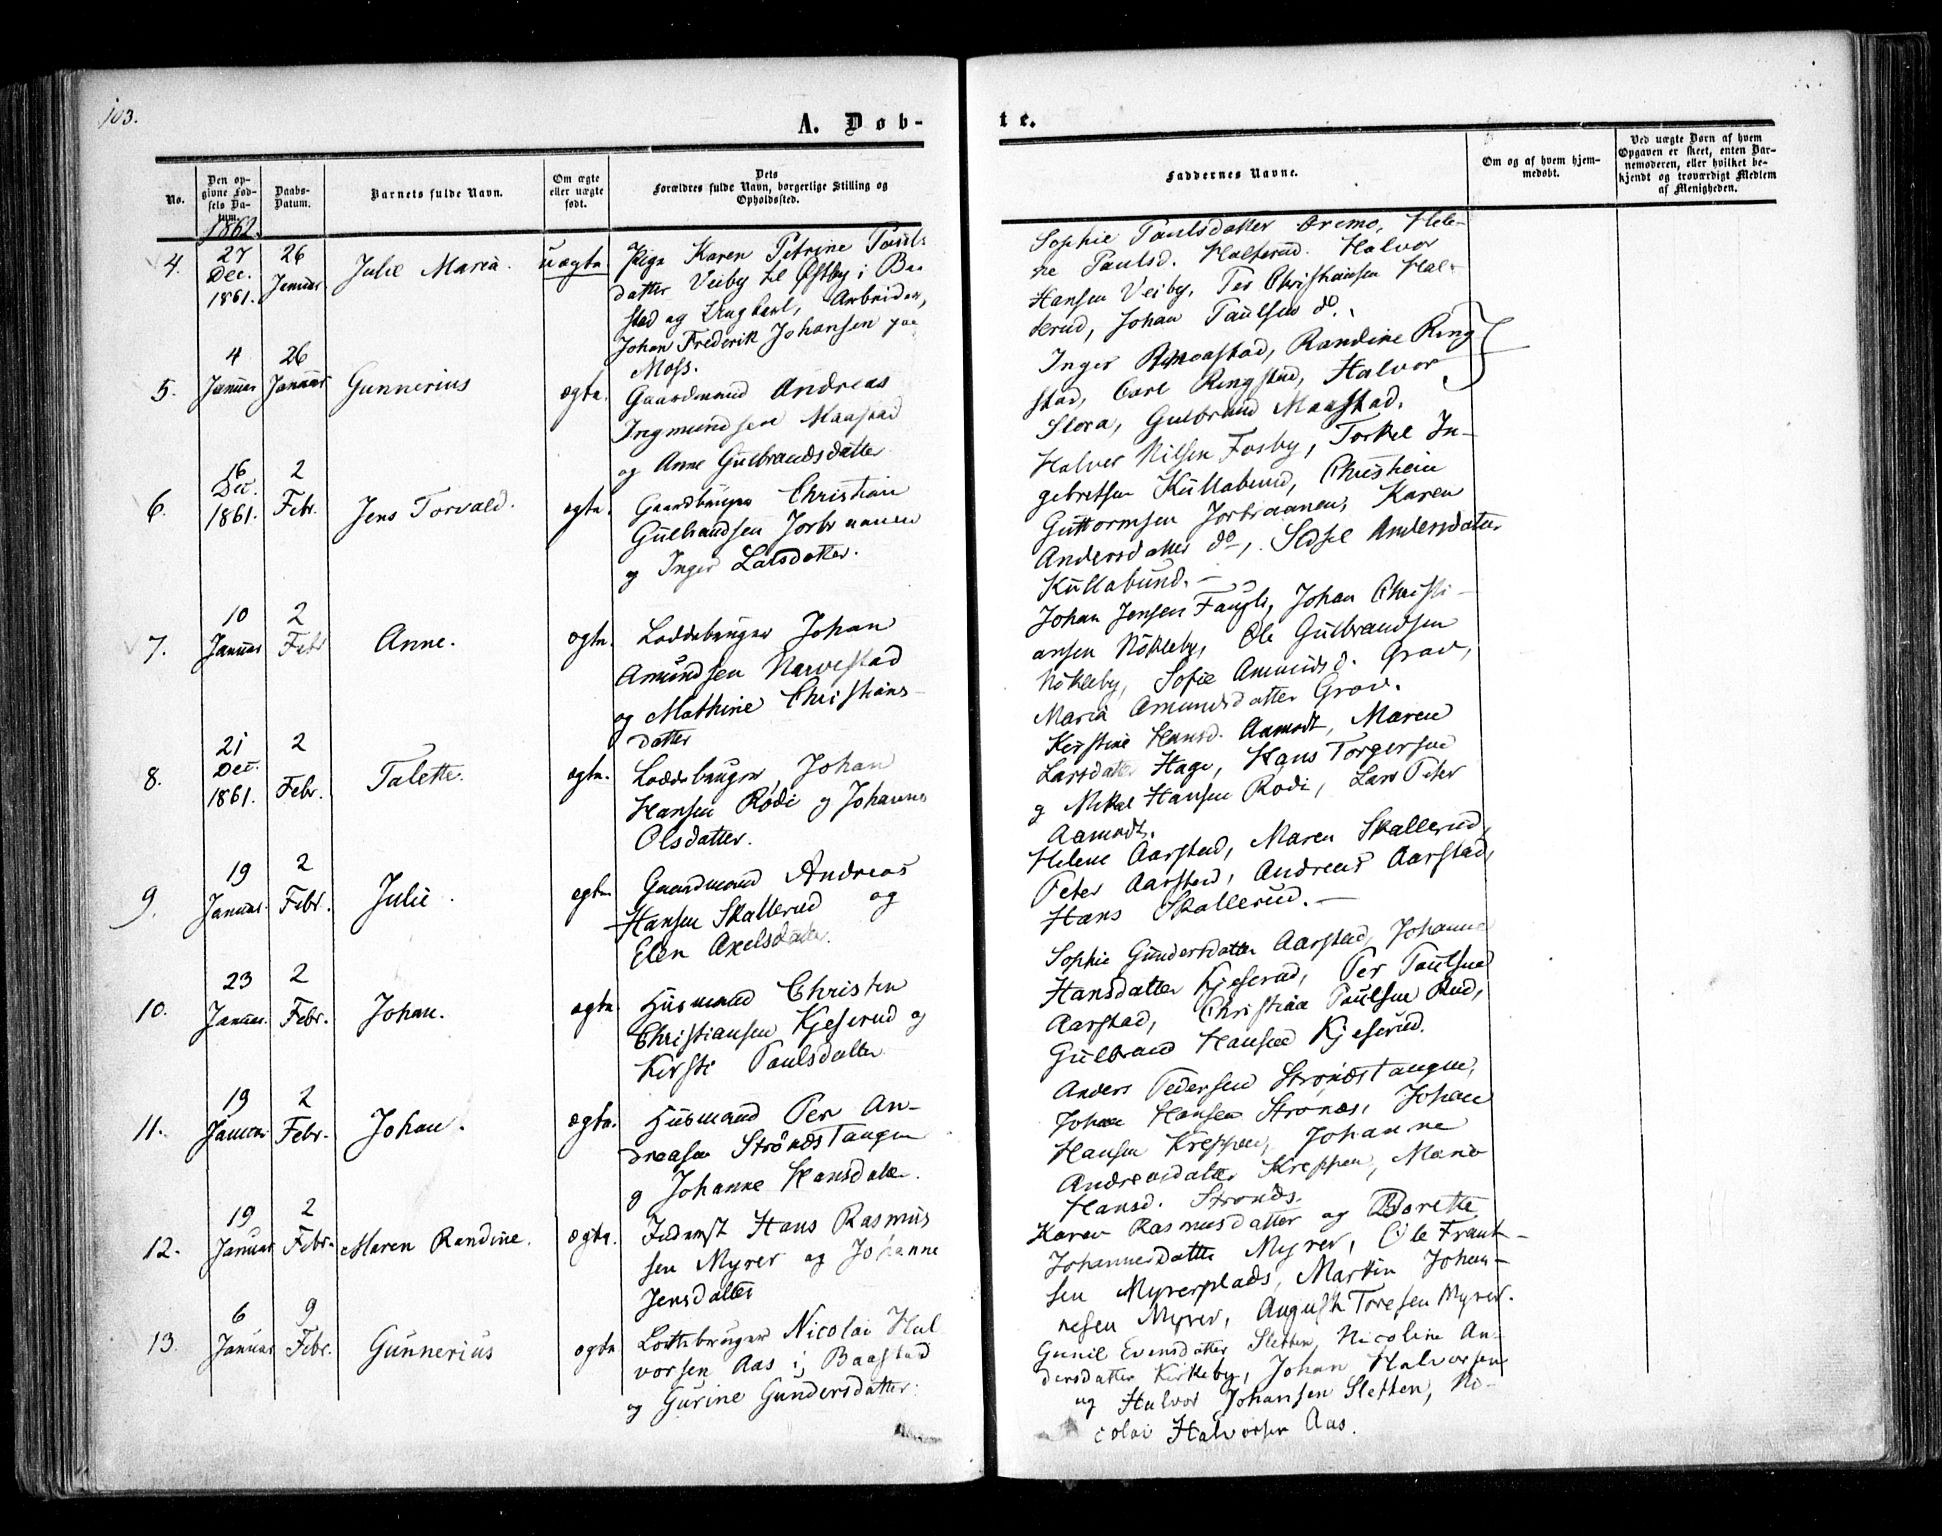 103.
A. Døb-
te.
No.
Den op-
givne Fød-
sels Da-
tum.
Daabs-
Datum.
Barnets fulde Navn.
Om ægte
eller uægte
født.
Dets
Forældres fulde Navn, borgerlige Stilling og
Opholdssted.
Faddernes Navne.
Om og af hvem hjem-
medøbt.
Ved uægte Børn af hvem
Opgaven er skeet, enten Bar-
nemoderen, eller hvilket be-
kjendt og troværdigt Medlem
af Menigheden.
1862.
4.
27
Dec.
1861.
26
Januar
Julie Maria.
uægte
Pige Karen Petrine Pauls
datter Veiby til Østby i Baa
stad og Ungkarl, Arbeider,
Johan Frederik Johansen paa
Moss.
Sophie Paulsdatter Øremo, Hele-
ne Paulsd. Halterud. Halvor
Hansen Veiby, Per Christiansen Hal-
terud, Johan Paulsen do.
5.
4
Januar
26
Januar
Gunnerius
ægte.
Gaardmand Andreas
Ingmundsen Maastad
og Anne Gulbrandsdatter
Inger Maastad, Randine Ring
stad, Carl Ringstad, Halvor
Slora, Gulbrand Maastad.
6.
16
Dec.
1861.
2
Febr.
Jens Torvald.
ægte.
Gaardbruger Christian
Gulbrandsen Jorbraanen
og Inger Larsdatter.
Halvor Nilsen Fosby, Torkel In-
gebretsen Kullebund, Christian
Guttormsen Jorbraanen, Karen
Andersdatter do, Sidsel Andersdatter
Kullebund. -
7.
10
Januar
2
Febr
Anne.
ægte.
Loddebruger Johan
Amundsen Narvestad
og Mathine Christians-
datter
Johan Jensen Faugli, Johan Christi-
ansen Nökleby, Ole Gulbrandsen
Nökleby, Sofie Amundsd. Grav,
Maria Amundsdatter Grav.
8.
21
Dec.
1861.
2
Febr.
Talette.
ægte.
Loddebruger Johan
Hansen Rødi og Johanne
Olsdatter.
Kirstine Hansd. Aamodt, Maren
Larsdatter Hage, Hans Torgersen
og Mikal Hansen Rødi, Lars Peter
Aamodt.
9.
19
Januar.
2
Febr.
Julie.
ægte
Gaardmand Andreas
Hansen Skallerud og
Elen Axelsdatter.
Helene Aarstad, Maren Skallerud,
Peter Aarstad, Andreas Aarstad,
Hans Skallerud. -
10.
23
Januar.
2
Febr.
Johan.
ægte.
Husmand Christen
Christiansen Kjeserud og
Kirsti Paulsdatter
Sophie Gundersdatter Aarstad, Johanne
Hansdatter Kjeserud, Per Paulsen
Aarstad, Christian Paulsen Rud,
Gulbrand Hansen Kjeserud.
11.
19
Januar
2
Febr.
Johan.
ægte.
Husmand Per An-
dreasen Strøndstangen
og Johanne Hansdatter.
Anders Pedersen Strøndstangen,
Johan Hansen Strønds, Johan
Hansen Kreppen, Johanne
Andreasdatter Kreppen, Maria
Hansd. Strønds.
12.
19
Januar
2
Febr.
Maren Randine.
ægte.
Inderst Hans Rasmus
sen Myrer og Johanne
Jensdatter
Karen Rasmusdatter og Borette
Johannesdatter Myrer, Ole Frant-
sen Myrerplads, Martin Johan-
nesen Myrer, August Toresen Myrer.
13.
6
Januar
9
Febr.
Gunnerius
ægte
Lottebruger Nicolai Hal
vorsen Aas i Baastad
og Gurine Gundersdatter.
Gunil Evensdatter Sletten, Nicoline An-
dersdatter Kirkeby, Johan Halvorsen
og Halvor Johansen Sletten, Ni-
colai Halvorsen Aas.